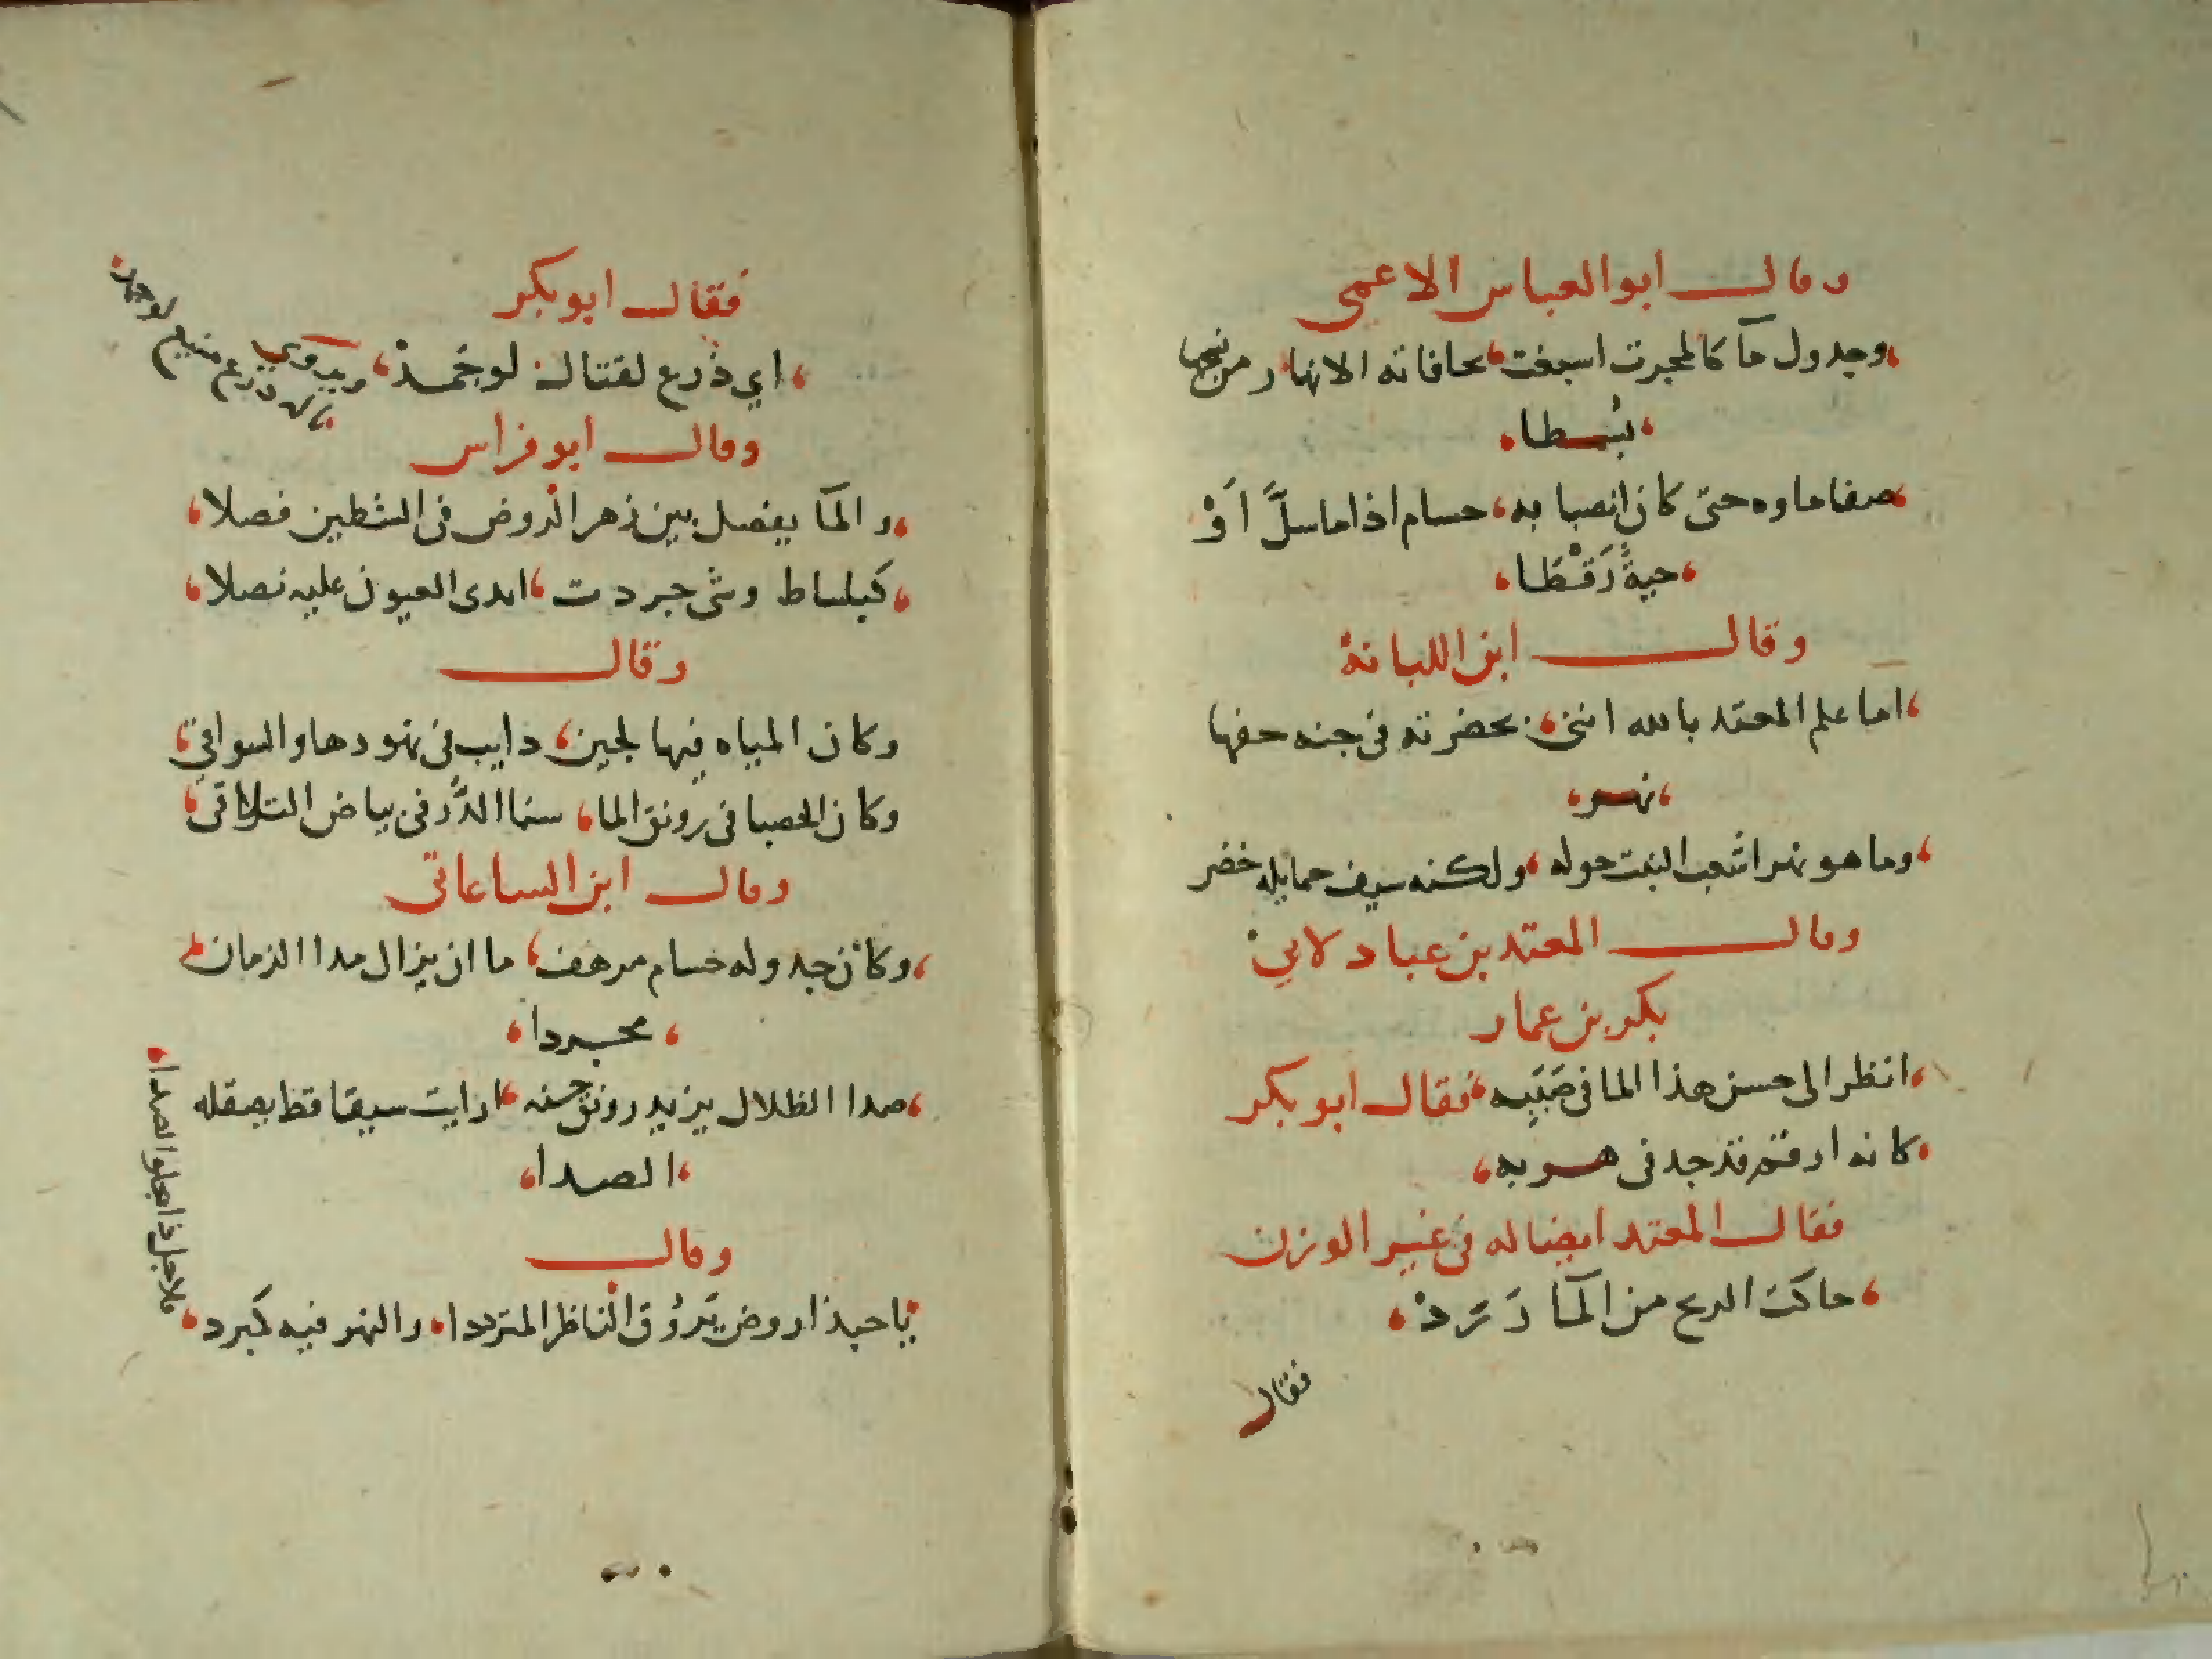 وقال ابو العباس الاعمى
وجدول ما كالمجرت اسبغت بحافاته الانهار من نهجها
بسطا
صفا ماوه حتى كان انصبابه حسام اذا ما سلَّ اَوْ
حيةً رَقْطا
وقال ابن اللبانة
اما علم المعتد بالله اننى بحضرته فى جنه حفها
نهر
وما هو نهر اشعب النبت حوله ولكنه سيف حمايله خضر
وقال المعتد بن عباد لابي
بكر بن عمار
انظر الى حسن هذا الما فى صَبَبِه فقال ابو بكر
كانه ارقم قد جد فى هربه
فقال المعتد ايضا له فى غير الوزن
حاكت الريح من المآ زَرَدْ
فقال
فقال ابو بكر
اي ذرع لقتال لو جَمدْ ويروى
درع منيع لو جمد
وقال ابو فراس
والمآ يفصل بين زهر الروض فى الشطين فصلا
كبساط وشى جردت ايدى العيون عليه نصلا
وقال
وكان المياه فيها لجين دايب فى نهودها والسواقي
وكان الحصبا فى رونق الما سنا الدُّر فى بياض التلاقى
وقال ابن الساعاتى
وكأن جدوله حسام مرهف ما ان يزال مدا الزمان
مجردا
صدا الظلال يزيد رونق حسنه ارايت سيفا قط يصقله
الصدا
وقال
يا حبذا روض يَروُق الناظر المترددا والنهر فيه كمبرد
فلاجل ذا يجلو الصدا